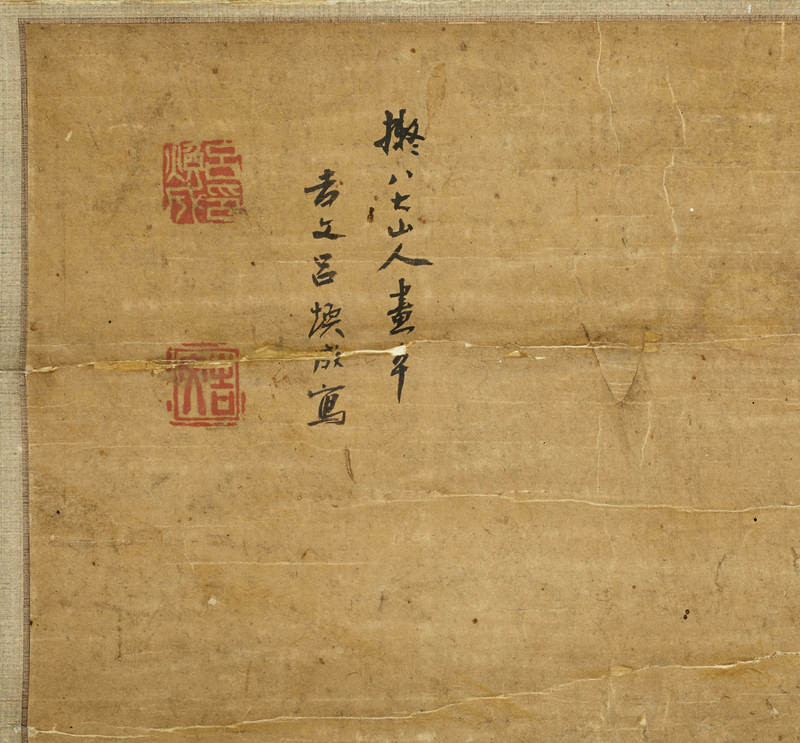 擬八大山人畫
吉文呂煥成寫
呂印煥成
吉文